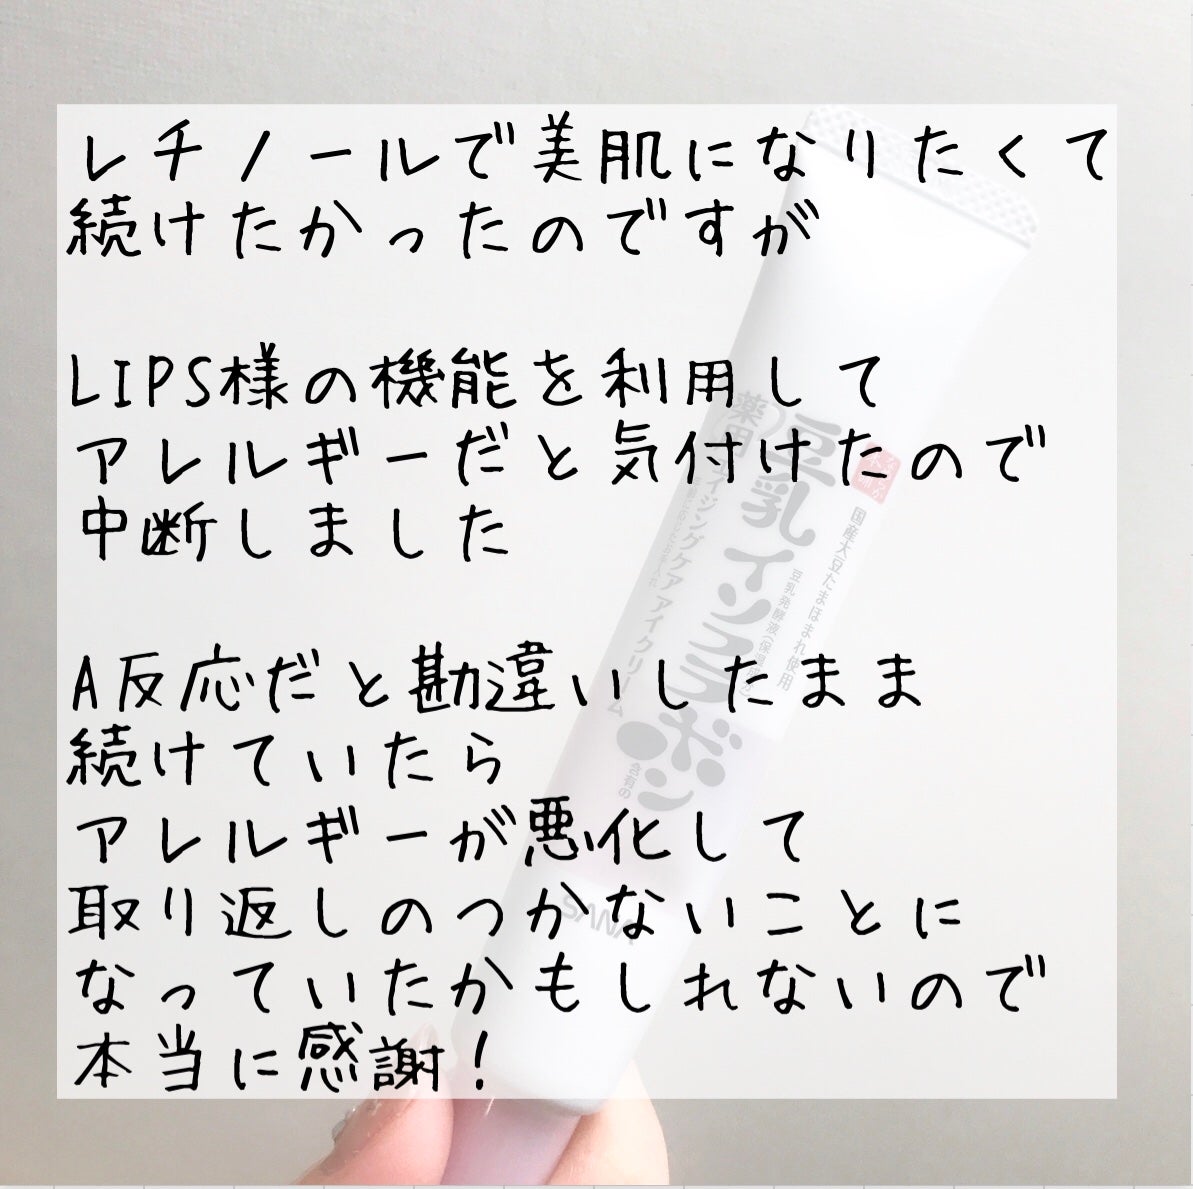 レチノールで美肌になりたくて
続けたかったのですが
LIPS様の機能を利用して
アレルギーだと気付けたので
中断しました
A反応だと勘違いしたまま
続けていたら
アレルギーが悪化して
取り返しのつかないことに
なっていたかもしれないので
本当に感謝！
国産大豆たまほまれ使用
豆乳発酵液(保湿
豆乳イソフラボン
含有の
薬用
エイジングケア アイクリーム
SANA